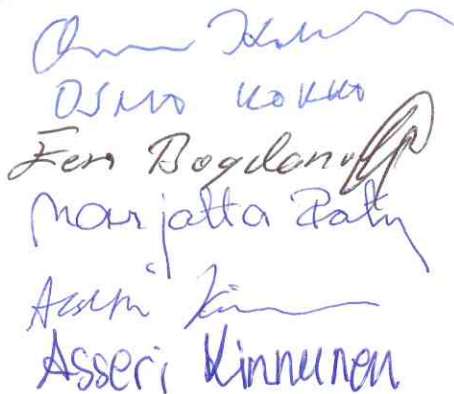 OSMO KOKKO
Eero Bogdanoff
Marjatta Räty
Asseri Kinnunen